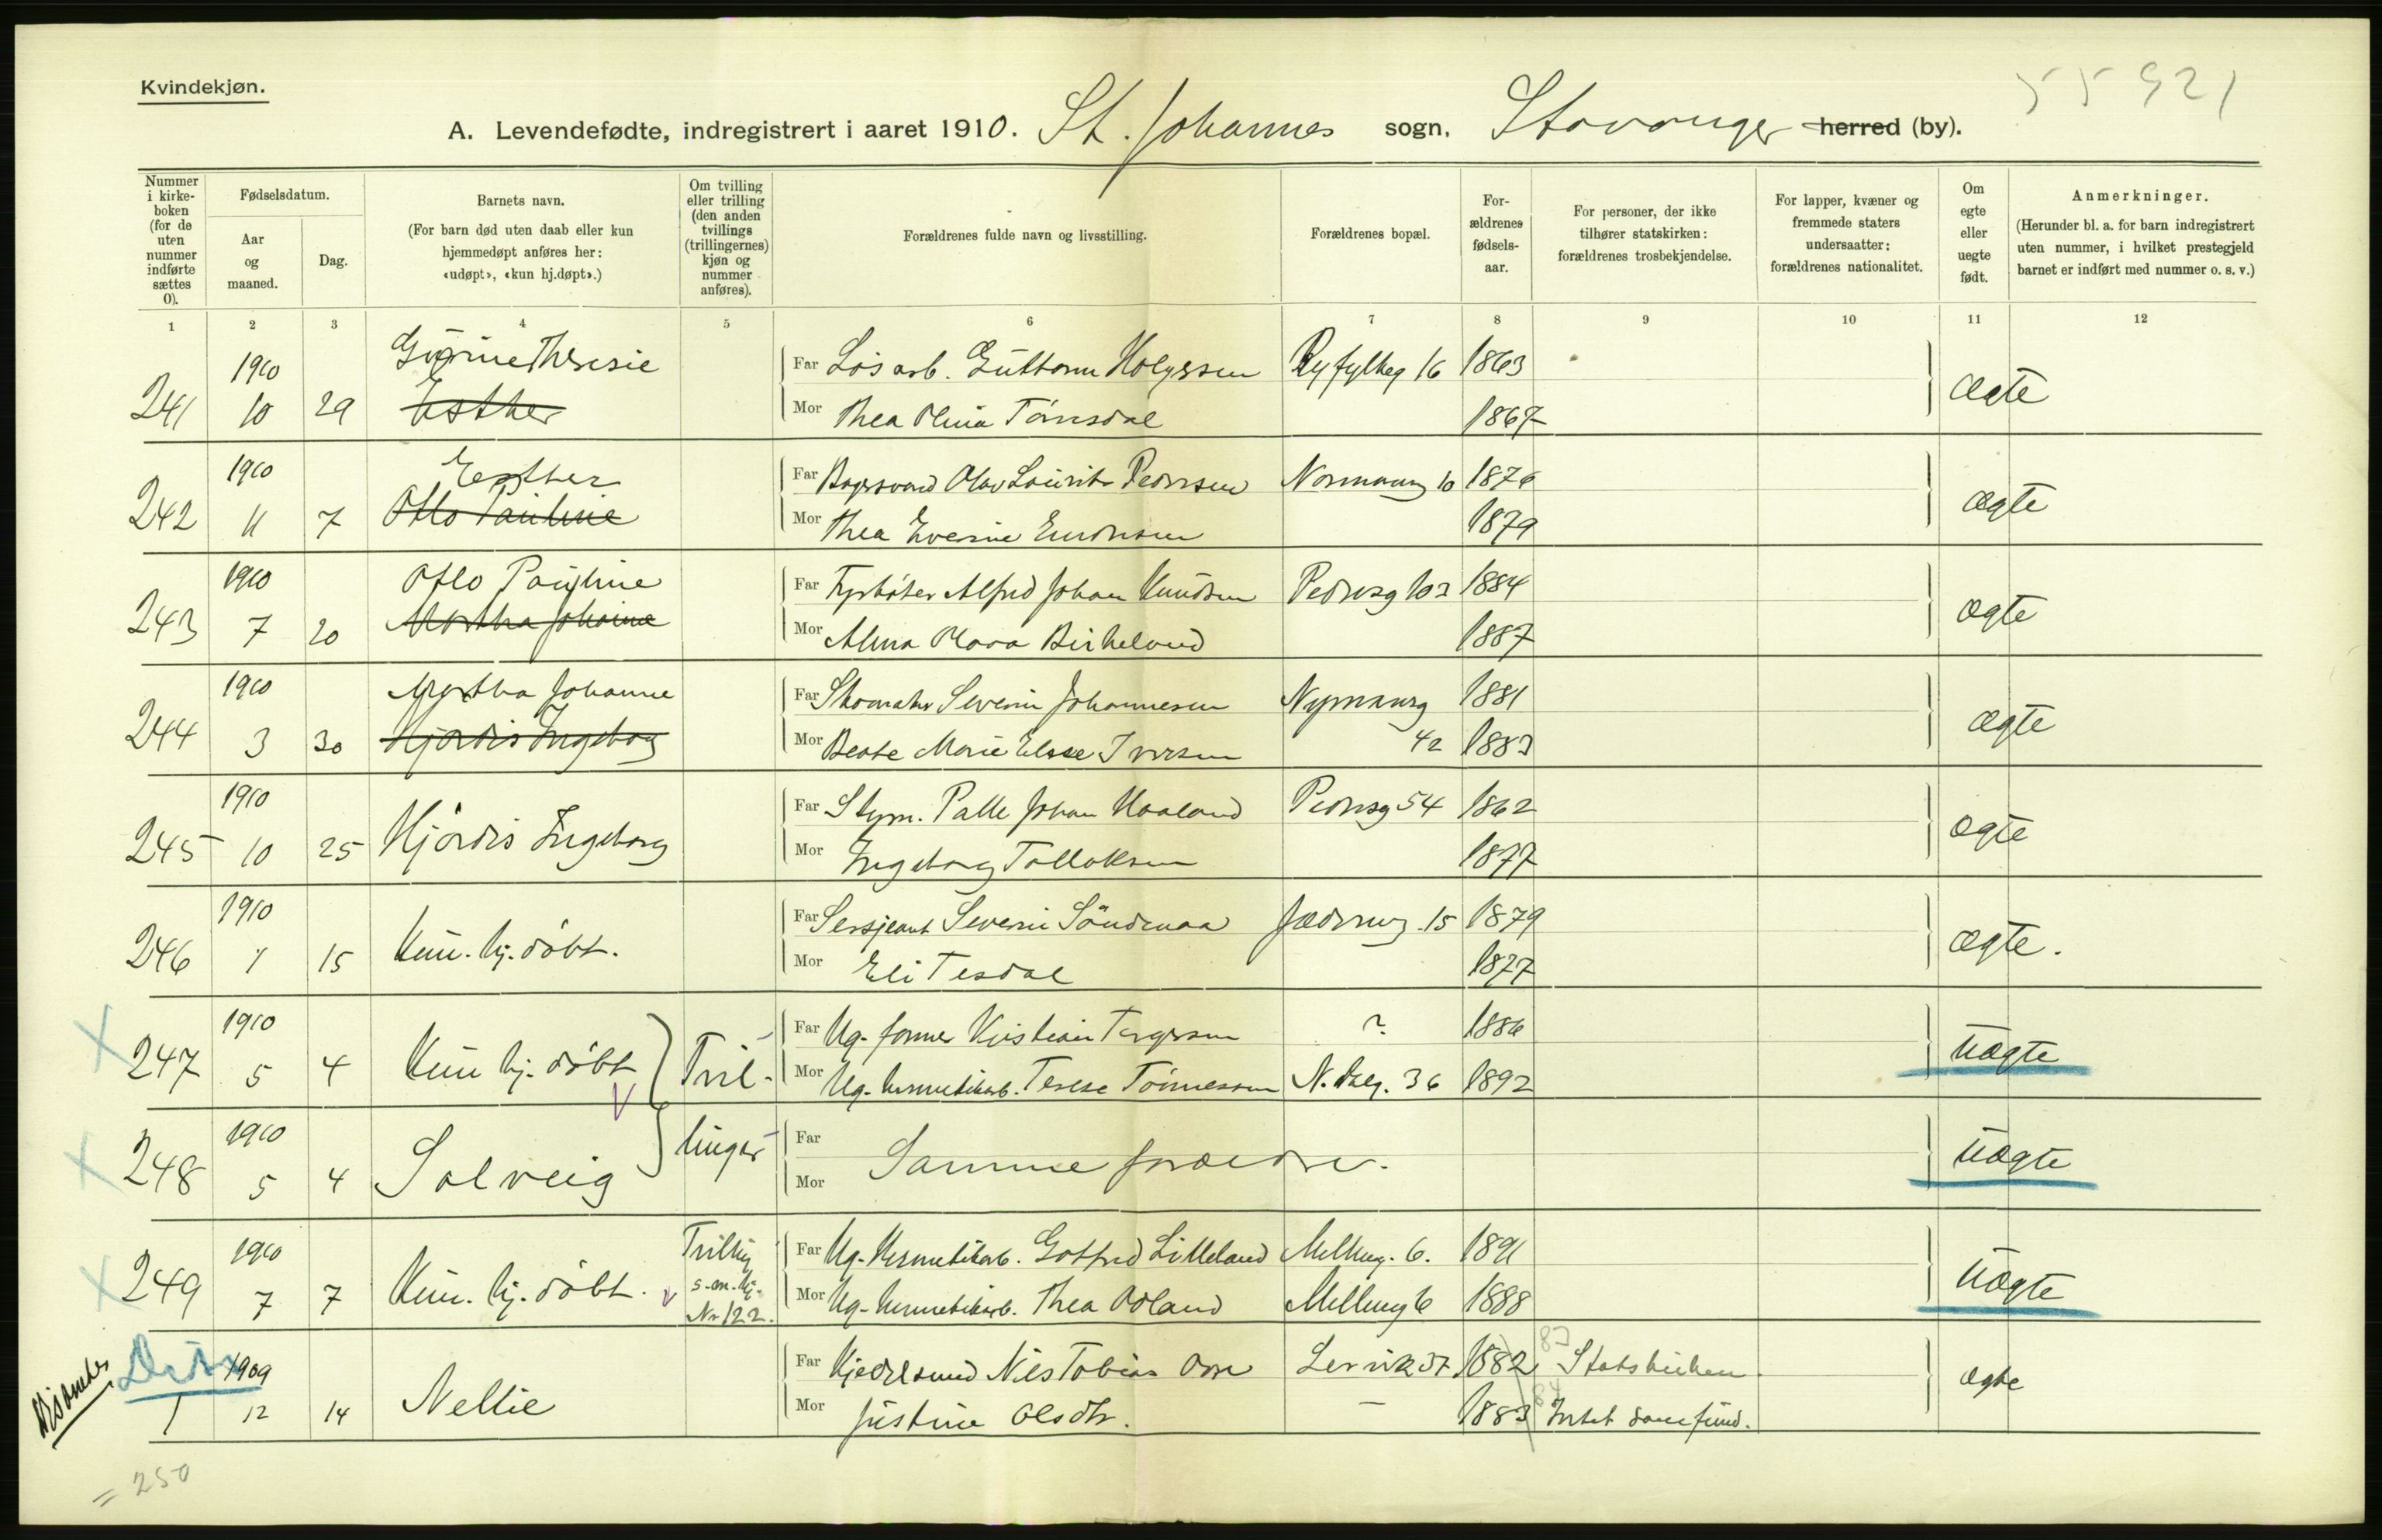 Kvindekjøn.
55921
A. Levendefødte, indregistrert i aaret 1910. St. Johannes sogn, Stavanger herred (by).
Nummer i kirke-boken (for de uten nummer indførte sættes 0).
Fødselsdatum.
Aar og maaned.
Dag.
Barnets navn.
(For barn død uten daab eller kun hjemmedøpt anføres her: «udøpt», «kun hj.døpt».)
Om tvilling eller trilling (den anden tvillings (trillingernes) kjøn og nummer anføres).
Forældrenes fulde navn og livsstilling.
Forældrenes bopæl.
For-ældrenes fødsels-aar.
For personer, der ikke tilhører statskirken: forældrenes trosbekjendelse.
For lapper, kvæner og fremmede staters undersaatter: forældrenes nationalitet.
Om egte eller uegte født.
Anmerkninger.
(Herunder bl. a. for barn indregistrert uten nummer, i hvilket prestegjeld barnet er indført med nummer o. s. v.)
1 2 3 4 5 6 7 8 9 10 11 12
1910 Theresie Far Løsarb. Guttorm Holgersen Ryfylkeg 16 1863
241 10 29 Esther Mor Thea Olina Tønsdal 1867 ægte
1910 Esther Far Olav Laurits Pedersen Normanng 10 1876
242 11 7 Otto Pauline Mor Thea Everine 1879 ægte
1910 Otto Pauline Far Fyrbøter Alfred Johan Knudsen Pedersg 103 1884
243 7 20 Martha Johanne Mor Alma Olava Birkeland 1887 ægte
1910 Martha Johanne Far Skomaker Severin Johannesen Nymansg 1881
244 3 30 Hjørdis Ingeborg Mor Beate Marie Elsse Iversen 42 1883 ægte
1910 Far Stym. Palle Johan Haaland Pedersg 54 1862
245 10 25 Hjørdis Ingeborg Mor Ingeborg Tollaksen 1877 ægte
1910 Far Sersjeant Severin Søndenaa Jæderveg. 15 1879
246 1 15 Kun. hj. døbt. Mor Eli Tesdal 1877 ægte.
1910 Far Ug. former Kristian Torgersen ? 1886
X 247 5 4 Kun hj. døbt Tvil- Mor Ug. hermetikarb. Terese Tönnessen N. Dalg. 36 1892 uægte
1910 linger Far
X 248 5 4 Solveig Samme forældre. Mor uægte
1910 Tvilling Far Ug. Hermetikarb. Gotfred Lilleland Mellemg. 6. 1891
X 249 7 7 Kun. hj. døbt. s. m. kj. Nr 122. Mor Ug. hermetikarb. Thea Odland Mellemg 6 1888 uægte
Dissenter 1909 Far Kjedelsmed Nils Tobias Lervik 37 1882 83 Statskirken.
1 12 14 Nellie Mor Justine Olsdtr. — 1883 84 Intet samfund. ægte
= 250